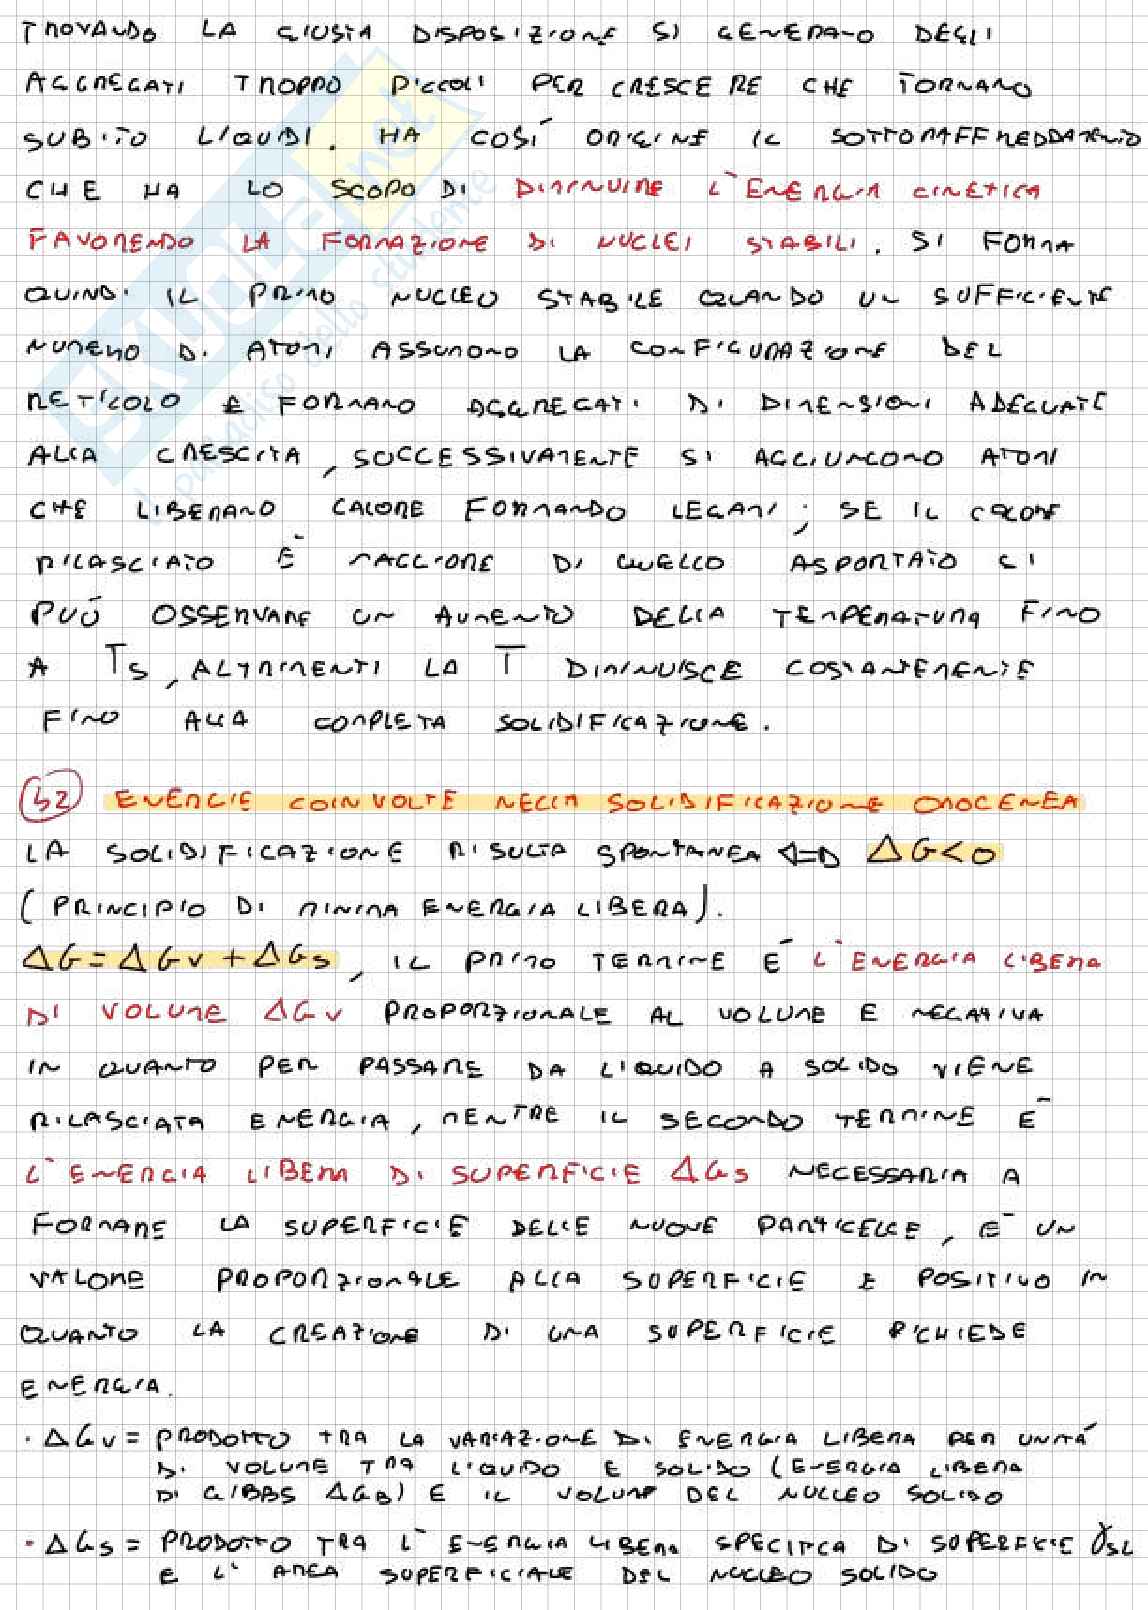 TROVANDO LA GIUSTA DISPOSIZIONE SI GENERANO DEGLI
AGGREGATI TROPPO PICCOLI PER CRESCERE CHE TORNANO
SUBITO LIQUIDI. HA COSÌ ORIGINE IL SOTTORAFFREDDAMENTO
CHE HA LO SCOPO DI DIMINUIRE L'ENERGIA CINETICA
FAVORENDO LA FORMAZIONE DI NUCLEI STABILI. SI FORMA
QUINDI IL PRIMO NUCLEO STABILE QUANDO UN SUFFICIENTE
NUMERO DI ATOMI ASSUMONO LA CONFIGURAZIONE DEL
RETICOLO E FORMANO AGGREGATI DI DIMENSIONI ADEGUATE
ALLA CRESCITA, SUCCESSIVAMENTE SI AGGIUNGONO ATOMI
CHE LIBERANO CALORE FORMANDO LEGAMI; SE IL CALORE
RILASCIATO È MAGGIORE DI QUELLO ASPORTATO CI
PUÒ OSSERVARE UN AUMENTO DELLA TEMPERATURA FINO
A Ts, ALTRIMENTI LA T DIMINUISCE COSTANTEMENTE
FINO ALLA COMPLETA SOLIDIFICAZIONE.
52 ENERGIE COINVOLTE NELLA SOLIDIFICAZIONE OMOGENEA
LA SOLIDIFICAZIONE RISULTA SPONTANEA <=> ΔG<0
(PRINCIPIO DI MINIMA ENERGIA LIBERA).
ΔG=ΔGv+ΔGs, IL PRIMO TERMINE È L'ENERGIA LIBERA
DI VOLUME ΔGv PROPORZIONALE AL VOLUME E NEGATIVA
IN QUANTO PER PASSARE DA LIQUIDO A SOLIDO VIENE
RILASCIATA ENERGIA, MENTRE IL SECONDO TERMINE È
L'ENERGIA LIBERA DI SUPERFICIE ΔGs NECESSARIA A
FORMARE LA SUPERFICIE DELLE NUOVE PARTICELLE, È UN
VALORE PROPORZIONALE ALLA SUPERFICIE E POSITIVO IN
QUANTO LA CREAZIONE DI UNA SUPERFICIE RICHIEDE
ENERGIA.
· ΔGv = PRODOTTO TRA LA VARIAZIONE DI ENERGIA LIBERA PER UNITÀ
DI VOLUME TRA LIQUIDO E SOLIDO (ENERGIA LIBERA
DI GIBBS ΔGB) E IL VOLUME DEL NUCLEO SOLIDO
· ΔGs = PRODOTTO TRA L'ENERGIA LIBERA SPECIFICA DI SUPERFICIE γSL
E L'AREA SUPERFICIALE DEL NUCLEO SOLIDO